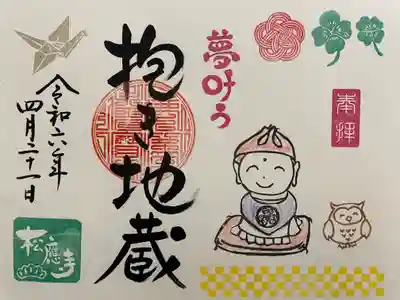 奉拝
夢叶う
抱き地蔵
令和六年
四月二十一日
松應寺